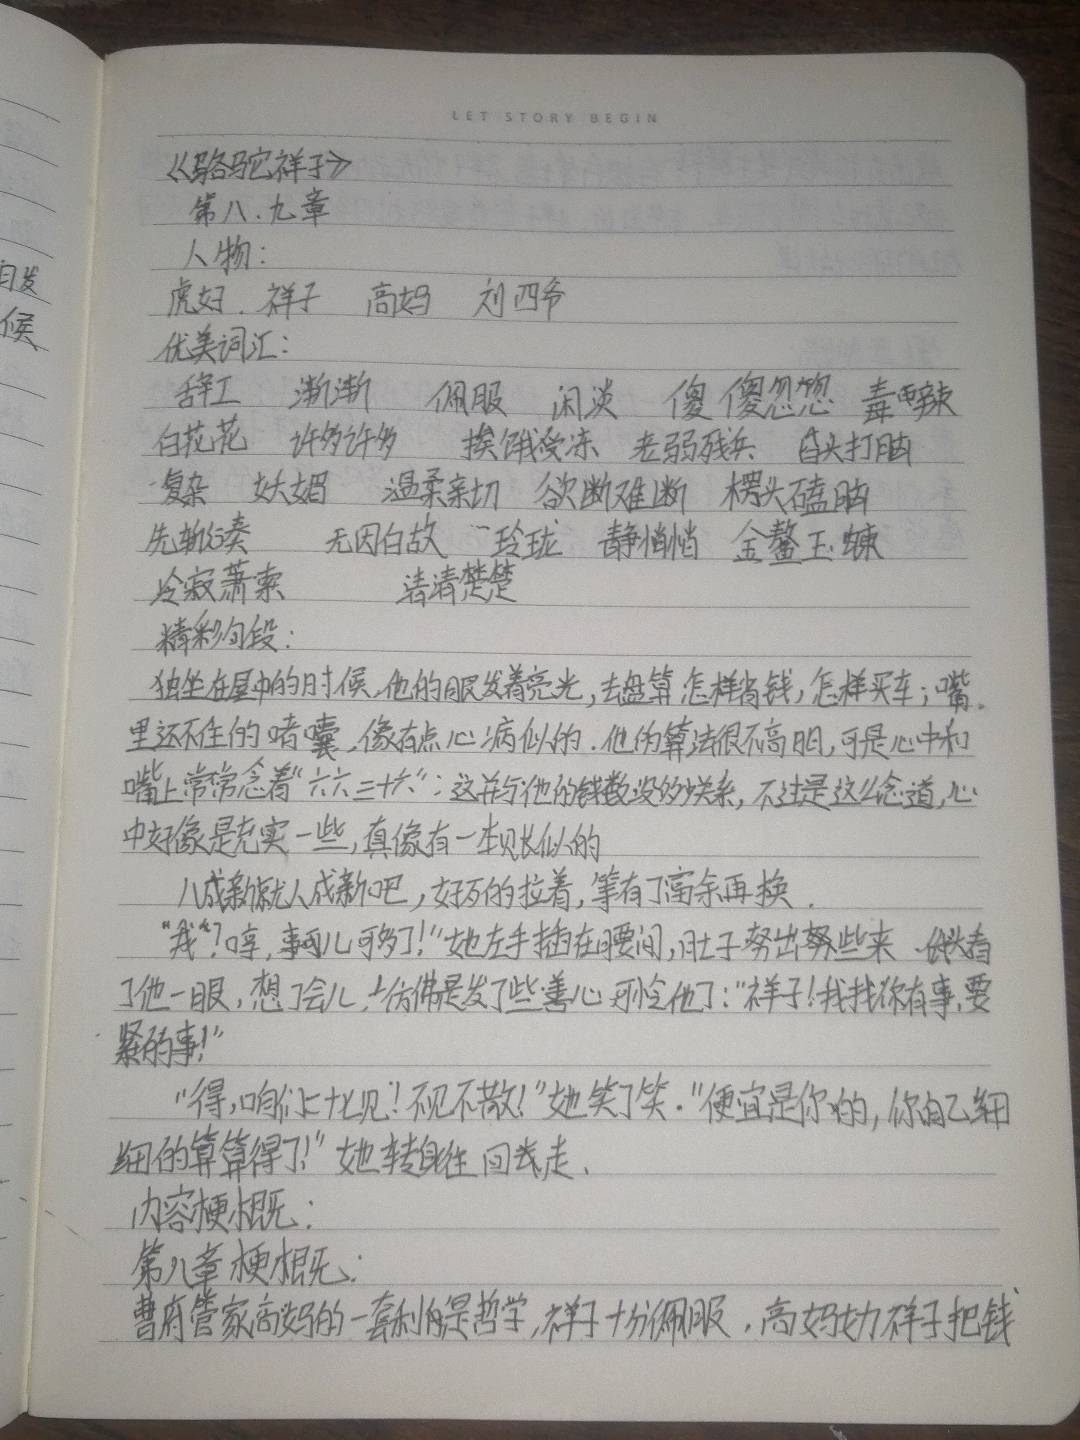 LET STORY BEGIN
《骆驼祥子》
第八.九章
人物：
虎妞.祥子 高妈 刘四爷
优美词汇：
辞工 渐渐 佩服 闲谈 傻傻忽忽 毒辣
白花花 许多许多 挨饿受冻 老弱残兵 昏头打脑
复杂 妖媚 温柔亲切 欲断难断 楞头磕脑
先斩后奏 无因白故 玲珑 静悄悄 金鳌玉蝀
冷寂萧索 清清楚楚
精彩句段：
独坐在屋中的时候,他的眼发着亮光,去盘算怎样省钱,怎样买车；嘴
里还不住的嘟囔,像有点心病似的.他的算法很不高明,可是心中和
嘴上常常念着“六六三十六”：这并与他的钱数没多少关系,不过是这么念道,心
中好像是充实一些,真像有一本账似的
八成新就八成新吧,好歹的拉着,等有了富余再换.
“我”?哼,事儿可多了!”她左手插在腰间,肚子努出些来 低头看
了他一眼,想了会儿,仿佛是发了些善心可怜他了：“祥子!我找你有事,要
紧的事!”
“得,咱们二十七见!不见不散!”她笑了笑.“便宜是你的,你自己细
细的算算得了!”她转身往回去走.
内容梗概：
第八章梗概：
曹府管家高妈的一套利息是哲学,祥子十分佩服.高妈劝祥子把钱
自发
候